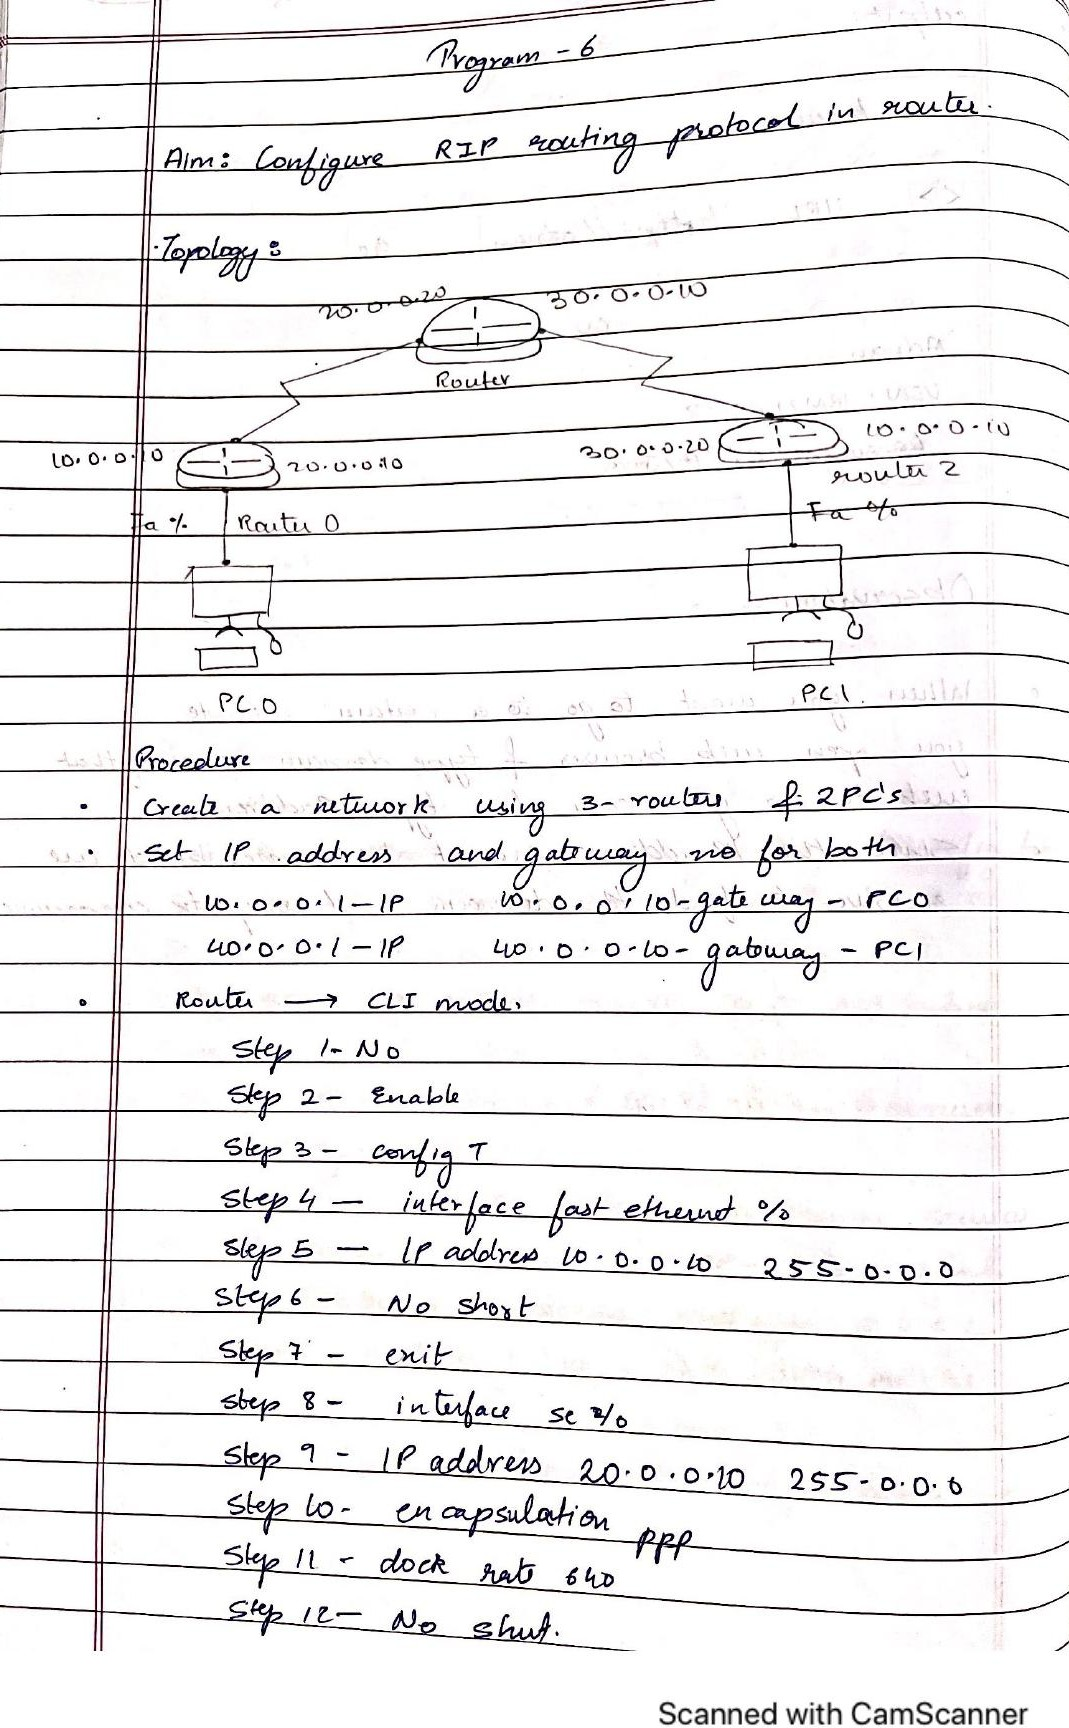 Program - 6
Aim: Configure RIP routing protocol in router.
Topology:
20.0.0.20 30.0.0.10
Router
10.0.0.10 20.0.0.10 30.0.0.20 10.0.0.10
router 2
Fa 0/0 Router 0 Fa 0/0
PC.0 PC1.
Procedure
• Create a network using 3-routers & 2PC's
• Set IP address and gateway no for both
10.0.0.1-IP 10.0.0.10-gate way - PC0
40.0.0.1-IP 40.0.0.10- gateway - PC1
• Router → CLI mode.
Step 1- No
Step 2- Enable
Step 3- config T
Step 4 - interface fast ethernet 0/0
Step 5 - IP address 10.0.0.10 255.0.0.0
Step 6 - No short
Step 7 - exit
Step 8 - interface se 2/0
Step 9 - IP address 20.0.0.10 255.0.0.0
Step 10- encapsulation ppp
Step 11 - clock rate 640
Step 12- No shut.
Scanned with CamScanner